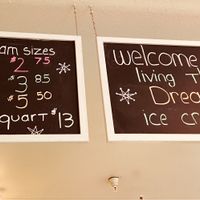 am sizes
$2 75
$3 85
$5 50
quart $13
welcome
living Th
Drea
ice cr